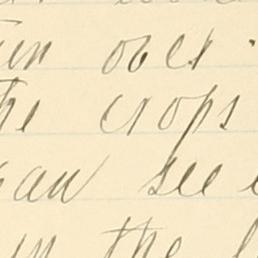 over.
the crops
can see
in the